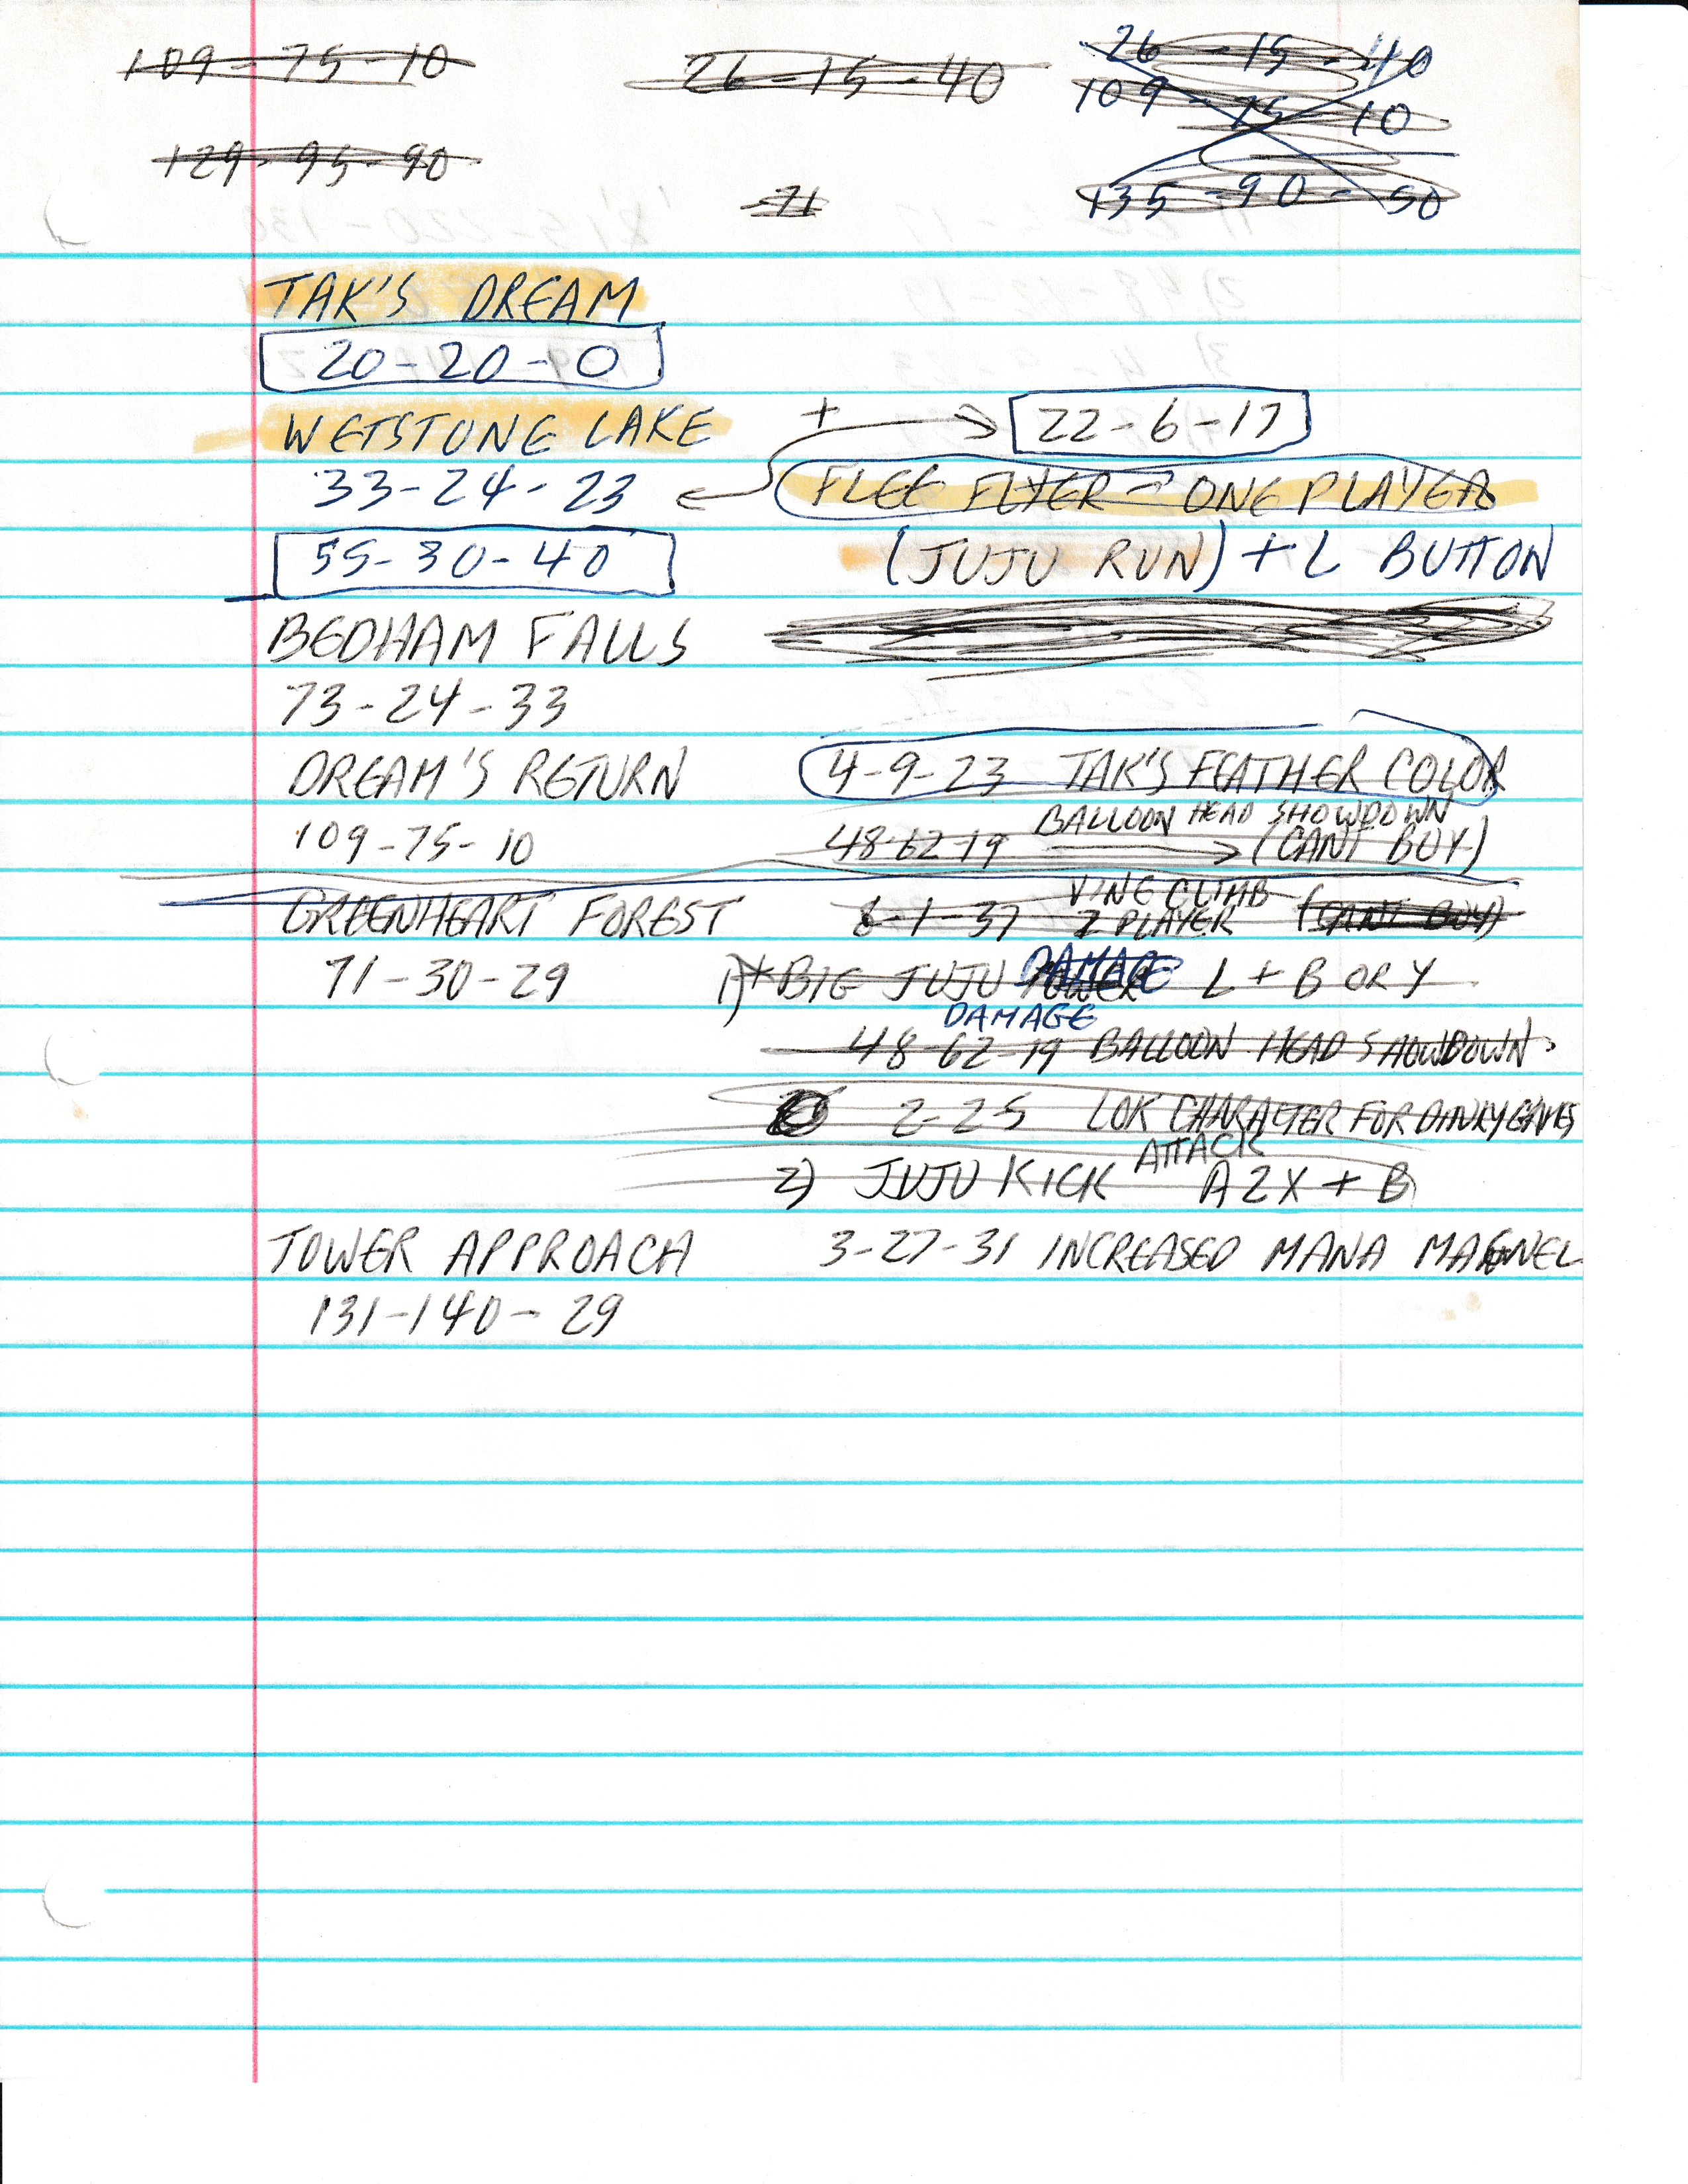 109-75-10
26-15-40
26-15-40
109-75-10
129-95-90
-71
135-90-50
TAK'S DREAM
20-20-0
WETSTONE LAKE
+ 22-6-17
33-24-23
FLEE FLYER - ONE PLAYER
55-30-40
(JUJU RUN) + L BUTTON
BEDHAM FALLS
73-24-33
DREAM'S RETURN
4-9-23 TAK'S FEATHER COLOR
109-75-10
BALLOON HEAD SHOWDOWN
48-62-19 (CANT BUY)
GREENHEART FOREST
VINE CLIMB
6-1-37 2 PLAYER (CANT BUY)
71-30-29
1) * BIG JUJU POWER DAMAGE L + B OR Y
DAMAGE
48-62-19 BALLOON HEAD SHOWDOWN
2-25 LOK CHARACTER FOR DINKYGAMES
ATTACK
2) JUJU KICK A2X + B
TOWER APPROACH
3-27-31 INCREASED MANA MAGNEL
131-140-29